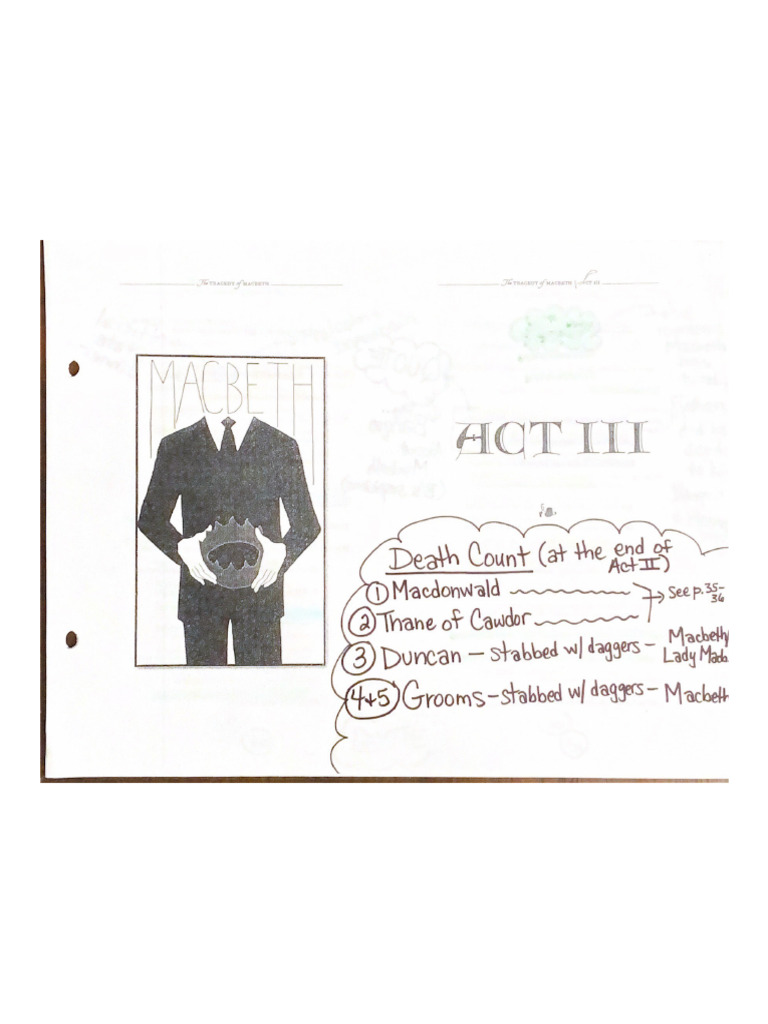 The TRAGEDY of MACBETH
The TRAGEDY of MACBETH
ACT III
MACBETH
ACT III
Death Count (at the end of
Act II)
1 Macdonwald
See p. 35-
36
2 Thane of Cawdor
3 Duncan - stabbed w/ daggers - Macbeth/
Lady Macb
4+5 Grooms - stabbed w/ daggers - Macbeth